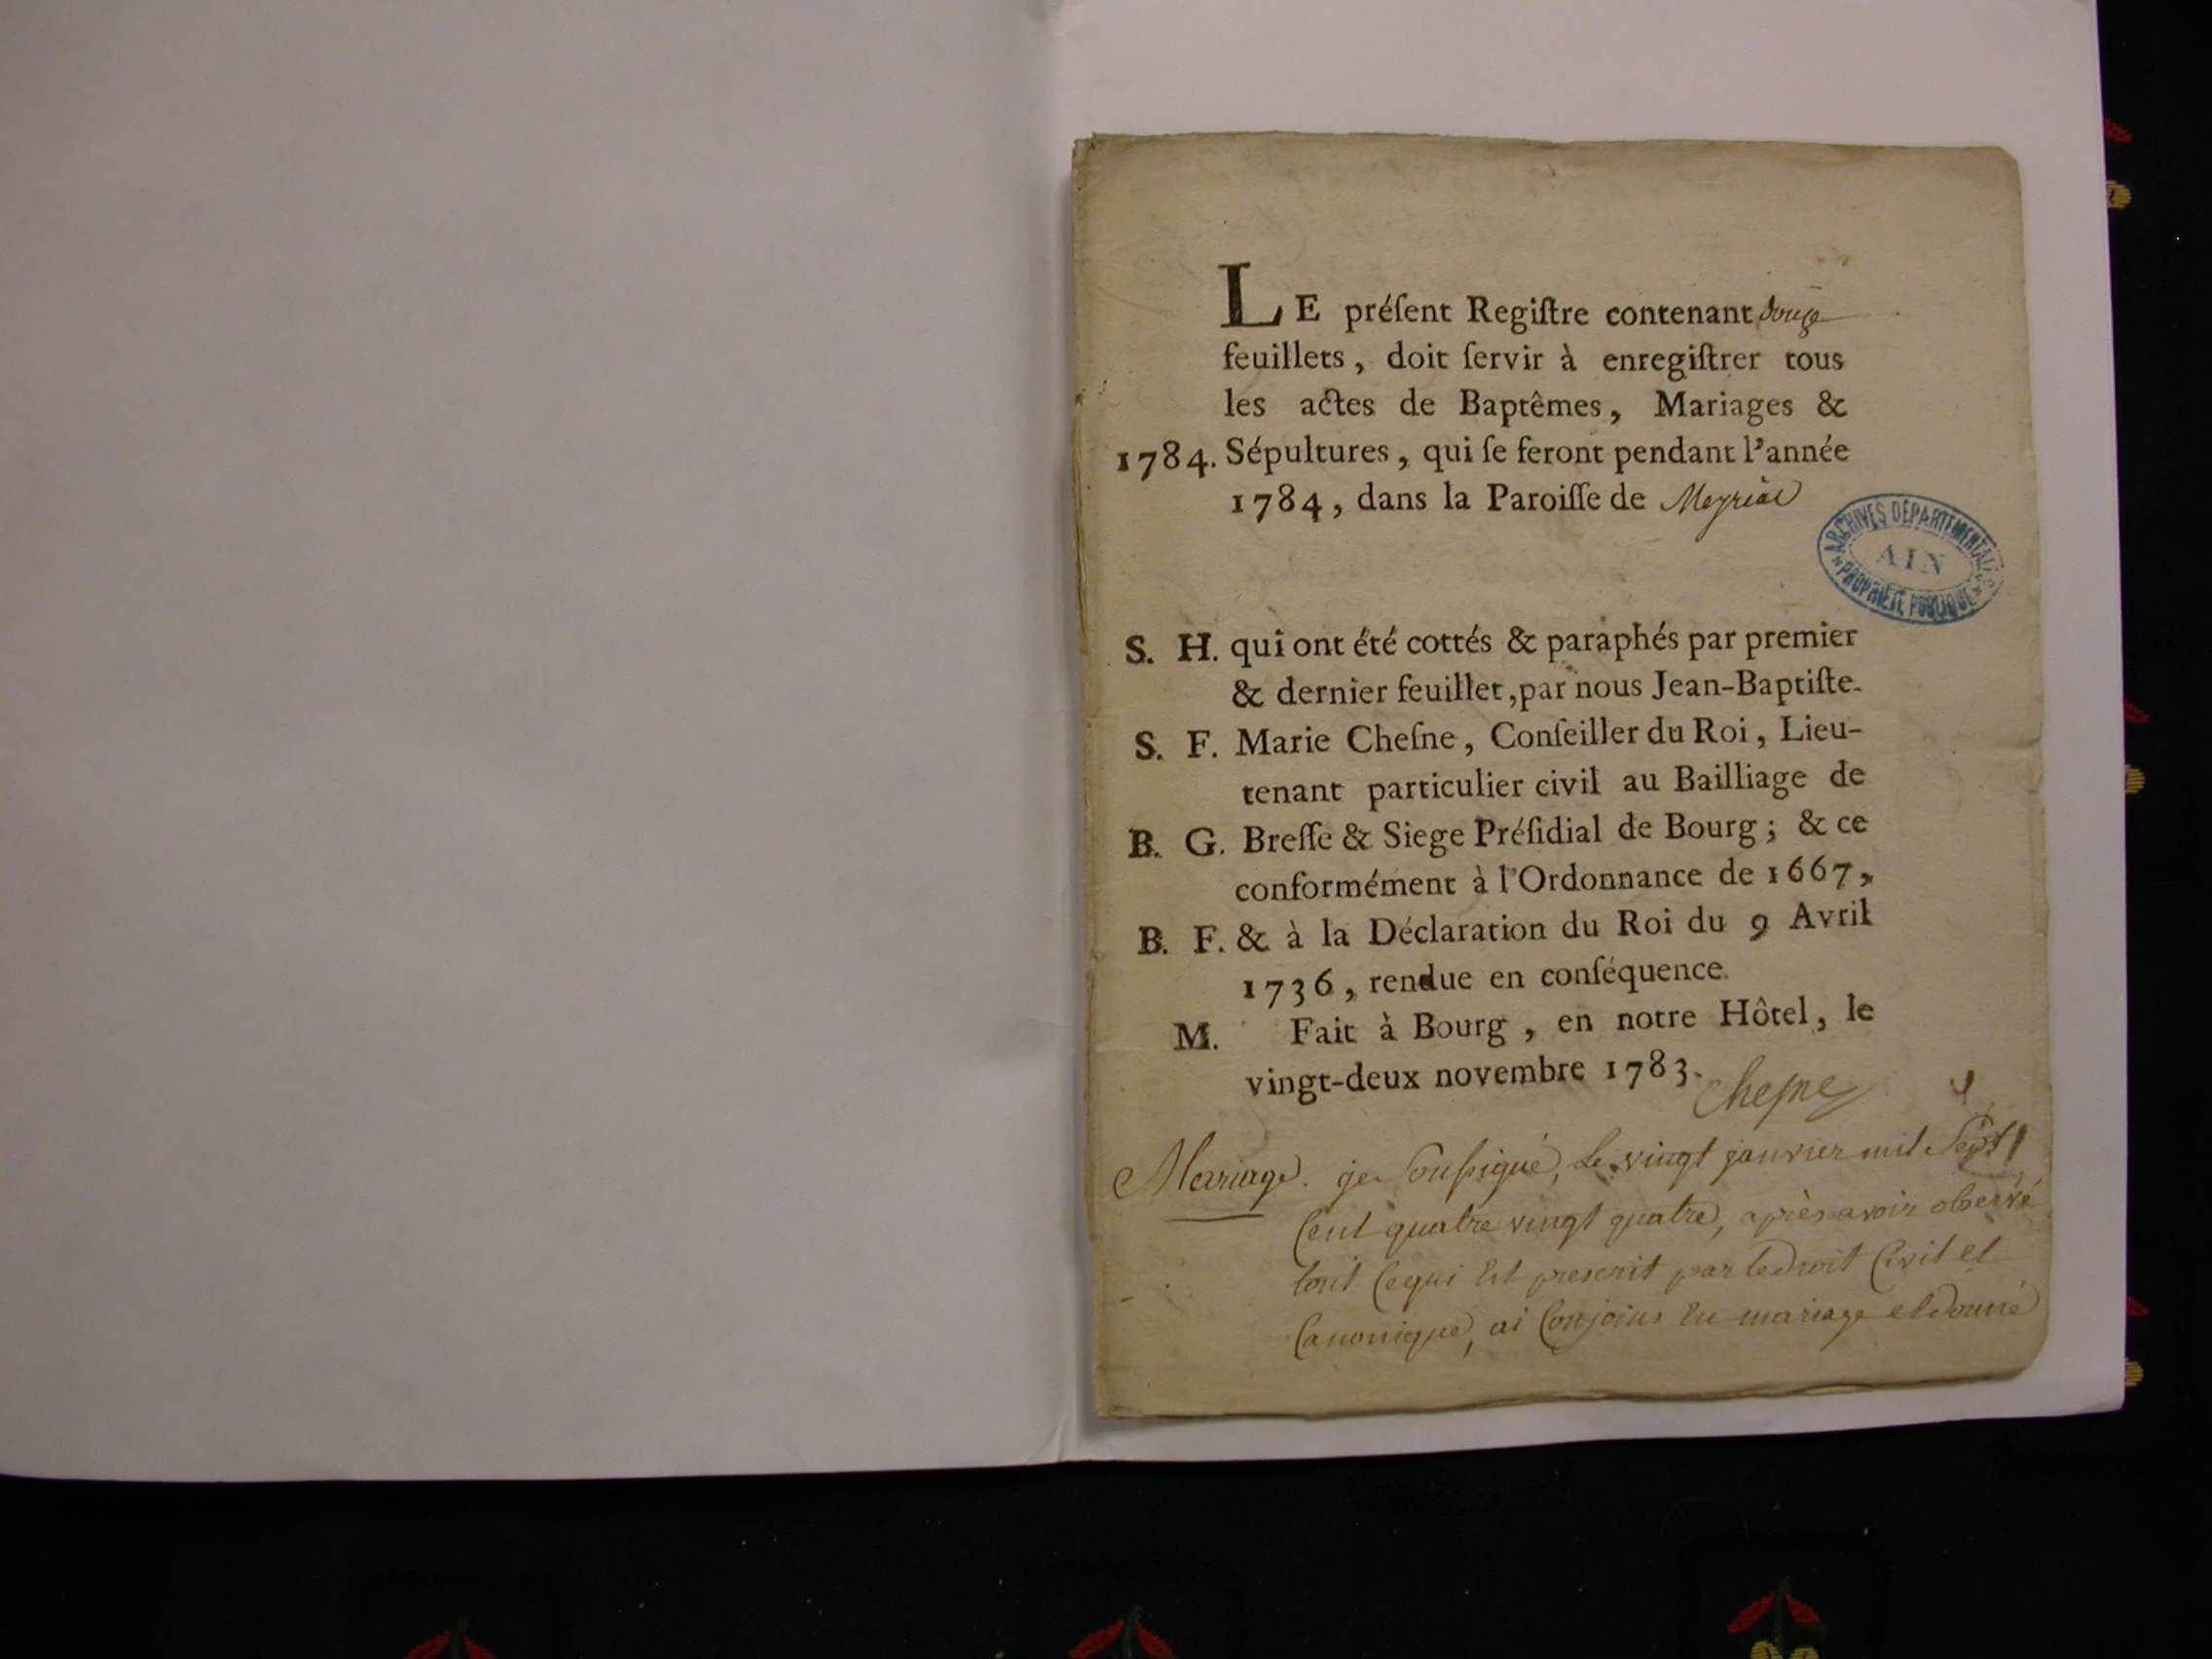 LE préſent Regiſtre contenant douze
feuillets, doit ſervir à enregiſtrer tous
les actes de Baptêmes, Mariages &
1784. Sépultures, qui ſe feront pendant l'année
1784, dans la Paroiſſe de Meyriat
ARCHIVES DÉPARTEMENTALES
AIN
PROPRIÉTÉ PUBLIQUE
S. H. qui ont été cottés & paraphés par premier
& dernier feuillet, par nous Jean-Baptiſte-
S. F. Marie Cheſne, Conſeiller du Roi, Lieu-
tenant particulier civil au Bailliage de
B. G. Breſſe & Siege Préſidial de Bourg; & ce
conformément à l'Ordonnance de 1667,
B. F. & à la Déclaration du Roi du 9 Avril
1736, rendue en conſéquence.
M. Fait à Bourg, en notre Hôtel, le
vingt-deux novembre 1783.
Cheſne
Mariage. je Souſsigné, Le vingt janvier mil Sept
Cent quatre vingt quatre, après avoir observé
tout Cequi Est prescrit par le droit Civil et
Canonique, ai Conjoins En mariage et donné